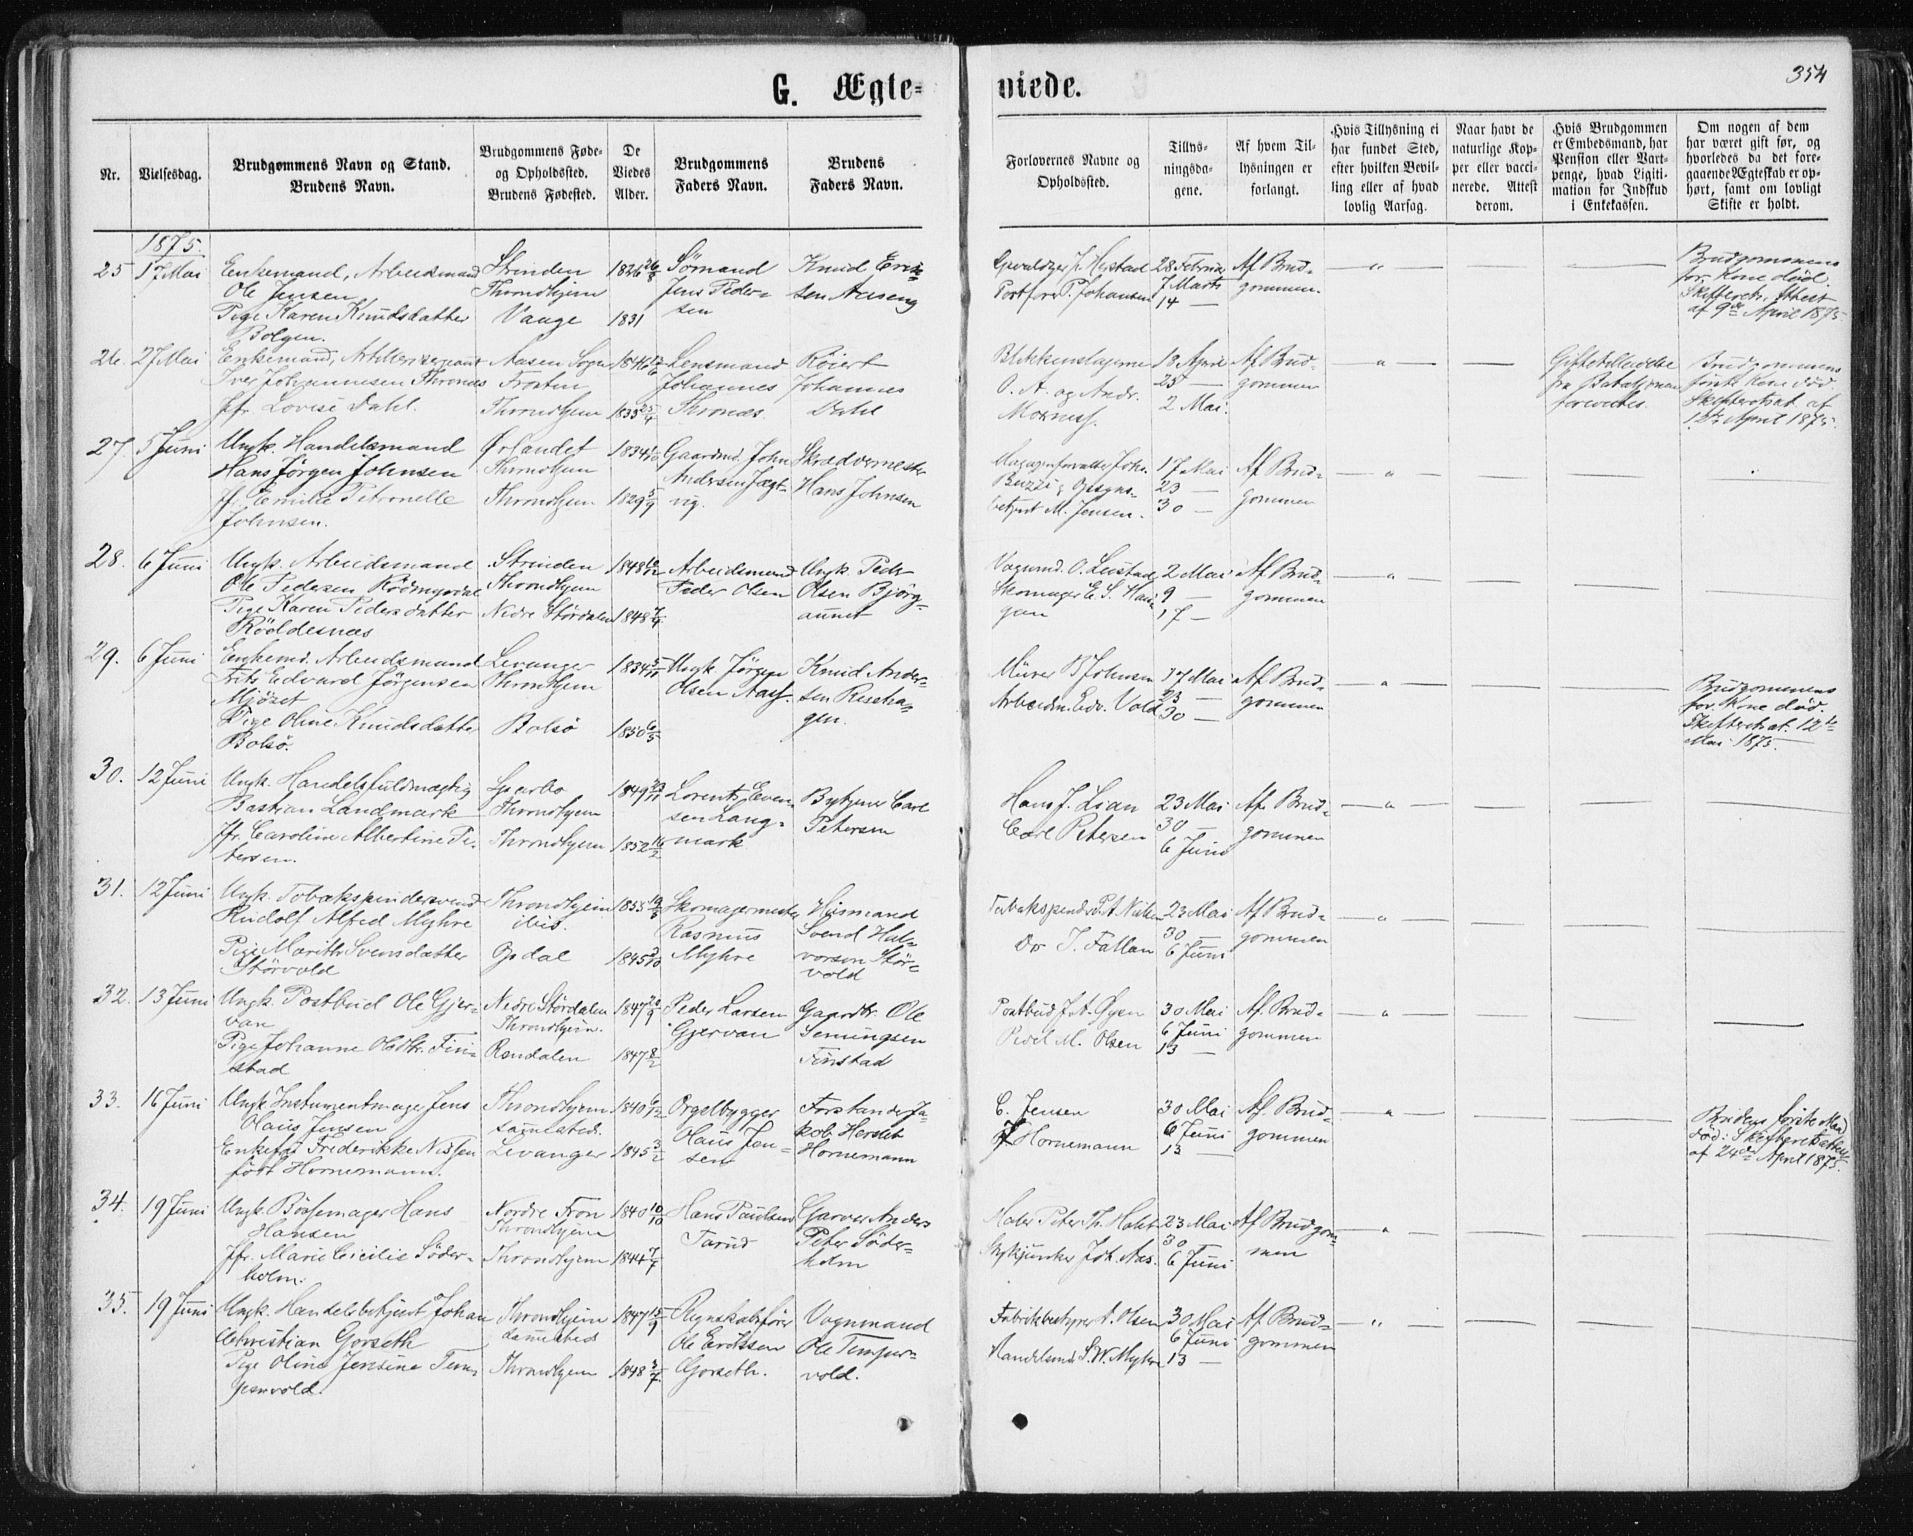 G. Ægte-
viede.
354
Nr.
Vielsesdag.
Brudgommens Navn og Stand.
Brudens Navn.
Brudgommens Føde-
og Opholdssted.
Brudens Fødested.
De
Viedes
Alder.
Brudgommens
Faders Navn.
Brudens
Faders Navn.
Forlovernes Navne og
Opholdssted.
Tillys-
ningsda-
gene.
Af hvem Til-
lysningen er
forlangt.
Hvis Tillysning ei
har fundet Sted,
efter hvilken Bevil-
ling eller af hvad
lovlig Aarsag.
Naar havt de
naturlige Kop-
per eller vacci-
nerede. Attest
derom.
Hvis Brudgommen
er Embedsmand, har
Pension eller Vart-
penge, hvad Ligiti-
mation for Indskud
i Enkekassen.
Om nogen af dem
har været gift før, og
hvorledes da det fore-
gaaende Ægteskab er op-
hørt, samt om lovligt
Skifte er holdt.
1875.
25 17 Mai
Enkemand, Arbeidsmand
Ole Jensen
Pige Karen Knudsdatter
Bolgen.
Strinden
Throndhjem
Vaage
1826 26/8
1831
Sømand
Jens Peder-
sen
Knud Erik-
sen Aaseng
P. Johansen
28 Februar
7 Marts
14 —
Af Brud-
gommen.
— " —
Brudgommens
for. Kone død.
Skifterets Attest
af 9de April 1875.
26. 27 Mai
Enkemand, Artillerisergeant
Iver Johannesen Thronæs
Jfr. Lovise Dahl.
Aasen Sogn
Frosten
Throndhjem
1835 25/4
Lensmand
Johannes
Thronæs.
Røiert
Johannes
Dahl
Blikkenslagerne
O. A. og Andr.
Moxness.
18 April
25 —
2 Mai.
Af Brud-
gommen
— " —
Giftetilladelse
fra Bataljonen
forevistes.
Brudgommens
første Kone død.
Skifteretsat. af
12te April 1875.
27. 5 Juni
Ungk. Handelsmand
Hans Jørgen Johnsen
Jf. Emilie Petronelle
Johnsen.
Ørlandet
Throndhjem
Throndhjem
1834
1829 5/9
Gaardmd. John
Andersen Jægt-
vig.
Skrædermester
Hans Johnsen
Magasinforvalter Johs.
Buzzi
betjent M. Jensen.
17 Mai
23 —
30 —
Af Brud-
gommen
— " —
28. 6 Juni
Ungk. Arbeidsmand
Ole Pedersen Rødmyrdal
Pige Karen Pedersdatter
Røoldesnæs
Strinden
Throndhjem
Nedre Størdalen
1848
1848 7/4
Arbeidsmand
Peder Olsen
Ungk. Peder
Olsen Bjørg-
aunet
Vognmd. O. Leistad
Skomager E. S. Hau-
gan
2 Mai
9 —
17 —
Af Brud-
gommen
— " —
29. 6 Juni
Enkemd. Arbeidsmand
Frits Edvard Jørgensen
Mjøset
Pige Oline Knudsdatter
Bolsø.
Levanger
Throndhjem
Bolsø
1834 5/11
1850 6/5
Ungk. Jørgen
Olsen Aas.
Knud Ander-
sen Resshau-
gen.
Murer B Johnsen
Arbeidm. Edv. Vold
17 Mai
23 —
30 —
Af Brud-
gommen
— " —
Brudgommens
for. Kone død.
Skifteretsat. 12te
Mai 1875.
30. 12 Juni
Ungk. Handelsfuldmægtig
Bastian Landmark
Jfr. Caroline Albertine Pe-
tersen.
Sparbo
Throndhjem
Throndhjem
1849 29/11
1852 16/2
Lorents Even-
sen Lang-
mark
Bytjener Carl
Petersen
Hans J. Lian
Carl Petersen
23 Mai
30 —
6 Juni
Af Brud-
gommen
— " —
31. 12 Juni
Ungk. Tobakspindersvend
Rudolf Alfred Myhre
Pige Marith Svensdatter
Størvold
Throndhjem
ibid.
Opdal
1855 19/8
1845
Skomagermester
Rasmus
Myhre
Husmand
Svend Hal-
vorsen Stør-
vold
Tobakspinder P. A. Nielsen
Do J. Fallan
23 Mai
30 —
6 Juni
Af Brud-
gommen
— " —
32. 13 Juni
Ungk. Postbud Ole Gjer-
van
Pige Johanne Olsdtr. Fin-
stad
Nedre Størdalen
Throndhjem.
Rendalen
1847 20/9
1847 8/2
Peder Larsen
Gjervan
Gaardbr. Ole
Semingsen
Finstad
Postbud J. A. Øyen
Pedel M. Olsen
30 Mai
6 Juni
13 —
Af Brud-
gommen
— " —
33. 16 Juni
Ungk. Instumentmager Jens
Olaus Jensen
Enkefru Frederikke Nissen
født Hornemann.
Throndhjem
samested.
Levanger
1840 6/12
1845 3/2
Orgelbygger
Olaus Jen-
sen
Forstander Ja-
kob Hersleb
Hornemann
C. Jensen
J Hornemann
30 Mai
6 Juni
13 —
Af Brud-
gommen
— " —
Brudens første Mand
død: Skifteretsattest
af 24de April 1875.
34. 19 Juni
Ungk. Bøssemager Hans
Hansen
Jfr. Marie Cicilie Söder-
holm.
Nordre Fron
Throndhjem
Throndhjem
1840 10/10
1844 7/7
Hans Paulsen
Tarud
Garver Anders
Peter Söder-
holm
Maler Peter Th. Holst
Styrkjunker Joh. Aas.
23 Mai
30
6 Juni
Af Brudgom-
men
— " —
35. 19 Juni
Ungk. Handelsbetjent Johan
Christian Gorseth
Pige Oline Jensine Tem-
pervold.
Throndhjem
samested
Throndhjem
1847 15/9
1848 3/7.
Regnskabsfører
Ole Ericksen
Gorseth.
Vognmand
Ole Temper-
vold.
Fabrikbestyrer A. Olsen
Handelsmd S. W. Myhre
30 Mai
6 Juni
13 —
Af Brud-
gommen
— " —